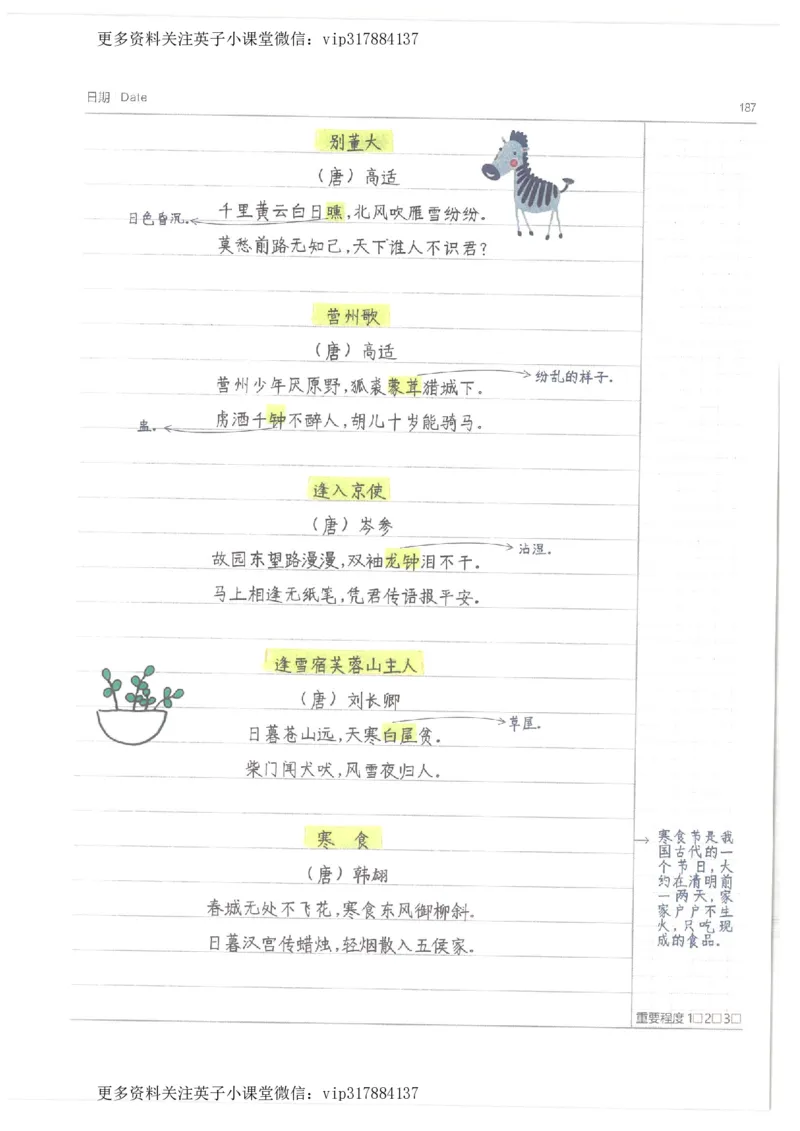 更多资料关注英子小课堂微信：vip317884137
日期 Date
187
别董大
（唐）高适
千里黄云白日曛，北风吹雁雪纷纷。
日色昏沉。
莫愁前路无知己，天下谁人不识君？
营州歌
（唐）高适
营州少年厌原野，狐裘蒙茸猎城下。
纷乱的样子。
虏酒千钟不醉人，胡儿十岁能骑马。
盅。
逢入京使
（唐）岑参
故园东望路漫漫，双袖龙钟泪不干。
沾湿。
马上相逢无纸笔，凭君传语报平安。
逢雪宿芙蓉山主人
（唐）刘长卿
日暮苍山远，天寒白屋贫。
草屋。
柴门闻犬吠，风雪夜归人。
寒 食
（唐）韩翃
春城无处不飞花，寒食东风御柳斜。
日暮汉宫传蜡烛，轻烟散入五侯家。
寒食节是我
国古代的一
个节日，大
约在清明前
一两天，家
家户户不生
火，只吃现
成的食品。
重要程度 1□2□3□
更多资料关注英子小课堂微信：vip317884137